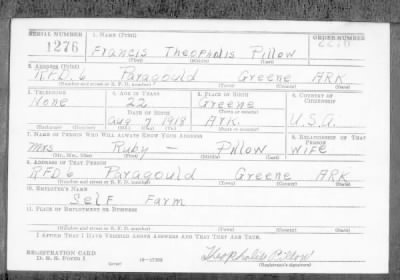 SERIAL NUMBER
1. NAME (Print)
ORDER NUMBER
1276
Francis Theophalis Pillow
(First) (Middle) (Last)
2. ADDRESS (Print)
RFD. 6 Paragould Greene ARK
(Number and street or R. F. D. number) (Town) (County) (State)
3. TELEPHONE
4. AGE IN YEARS
5. PLACE OF BIRTH
6. COUNTRY OF CITIZENSHIP
None
22
Greene
DATE OF BIRTH
Aug 7 1918
ARK.
U.S.A.
(Exchange) (Number)
(Mo.) (Day) (Yr.)
(State or country)
7. NAME OF PERSON WHO WILL ALWAYS KNOW YOUR ADDRESS
8. RELATIONSHIP OF THAT PERSON
Mrs Ruby — Pillow
Wife
(Mr., Mrs., Miss) (First) (Middle) (Last)
9. ADDRESS OF THAT PERSON
RFD 6 Paragould Greene ARK
(Number and street or R. F. D. number) (Town) (County) (State)
10. EMPLOYER'S NAME
Self Farm
11. PLACE OF EMPLOYMENT OR BUSINESS
(Number and street or R. F. D. number) (Town) (County) (State)
I AFFIRM THAT I HAVE VERIFIED ABOVE ANSWERS AND THAT THEY ARE TRUE.
REGISTRATION CARD
D. S. S. Form 1
(over)
16—17105
Theophalis Pillow
(Registrant's signature)